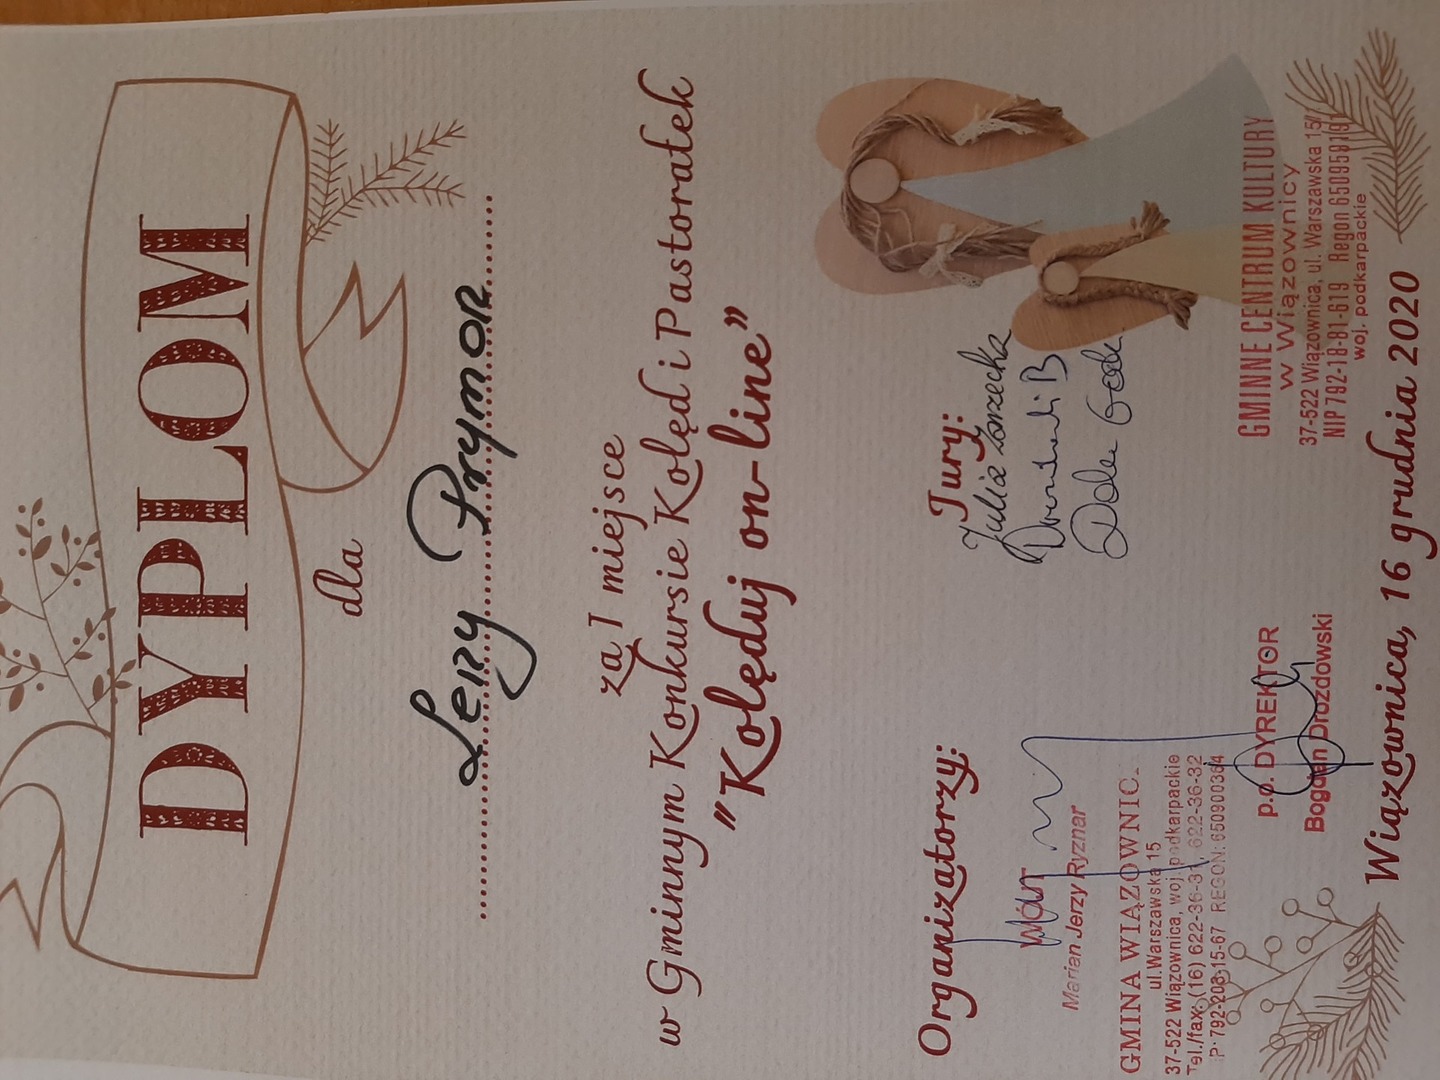 DYPLOM
dla
Leny Prymon
za I miejsce
w Gminnym Konkursie Kolęd i Pastorałek
"Kolęduj on-line"
Organizatorzy:
WÓJT
Marian Jerzy Ryznar
GMINA WIĄZOWNIC
ul.Warszawska 15
37-522 Wiązownica, woj. podkarpackie
Tel./fax: (16) 622-36-31, 622-36-32
IP: 792-203-15-67 REGON: 650900364
p.o. DYREKTOR
Bogdan Drozdowski
Jury:
Julia
GMINNE CENTRUM KULTURY
w Wiązownicy
37-522 Wiązownica, ul. Warszawska 15/1
NIP 792-18-81-619 Regon 650959191
woj. podkarpackie
Wiązownica, 16 grudnia 2020